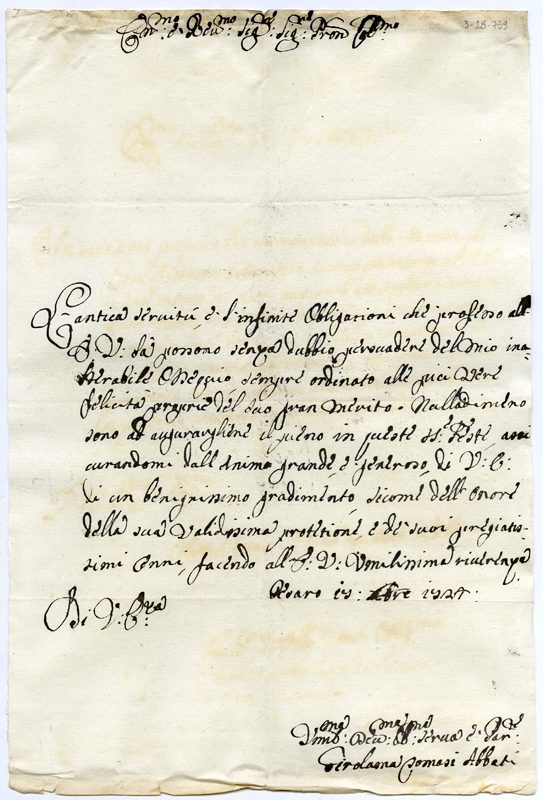 3-18-759
Em.mo e Rev.mo Sig.re Sig.re Pron Col.mo
L'antica servitù, e l'infinite Obligationi che professo all'
E: V: la possono senza dubbio persuadere del mio ina-
lterabile Ossequio sempre ordinato alle più vere
felicità proprie del suo gran Merito. Nulladimeno
sono ad augurargliene il pieno in queste S.te Feste, assi
curandomi dall'Animo grande e generoso, di V: E:
di un benignissimo gradimento, sicome dell'Onore
della sua Validissima protetione, e de' suoi pregiatis-
simi Cenni, facendo all'E: V: Umilissima riverenza
Pesaro 15: Xbre 1724:
Di V: E:za
Um.ma Dev.ma Obb.ma serva e
Girolama Tomasi Abbati